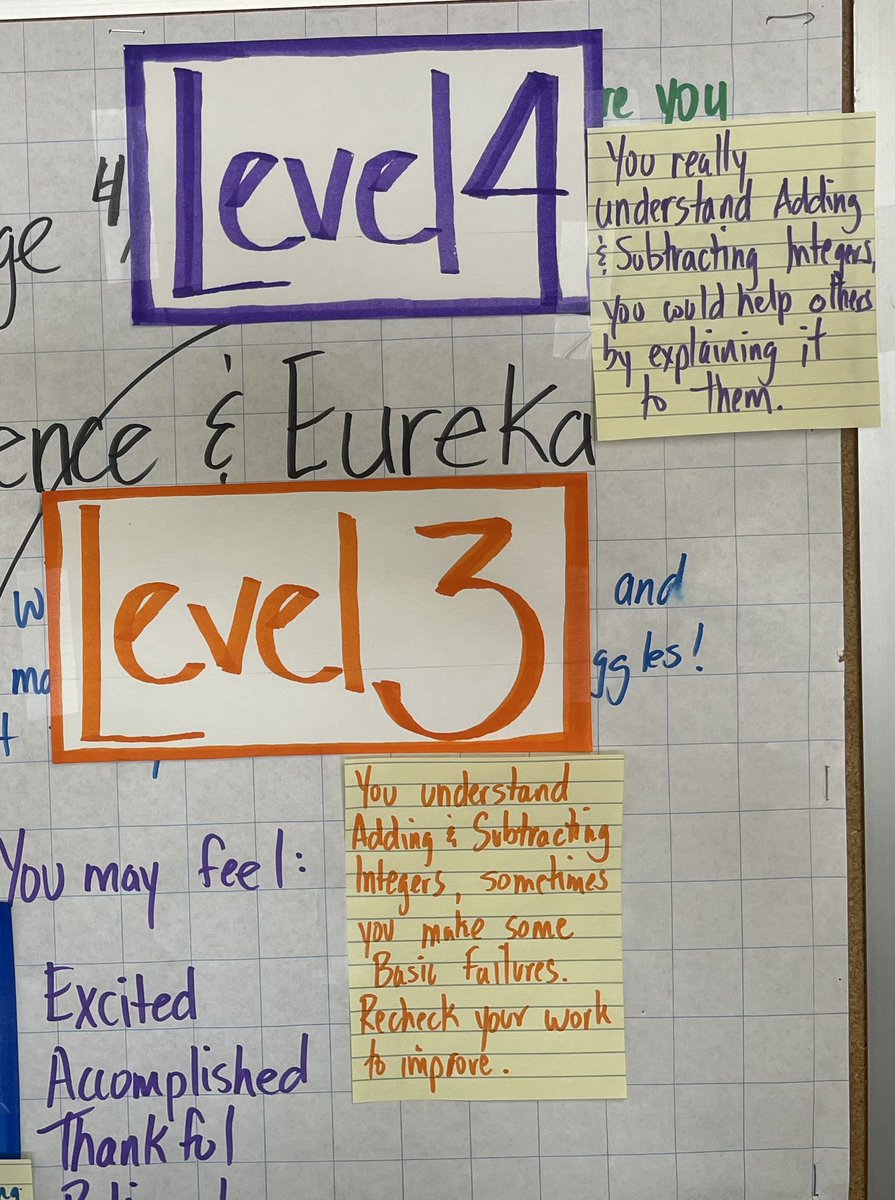 re you
Level 4
You really
understand Adding
& Subtracting Integers,
you could help others
by explaining it
to them.
ge
ence & Eureka
Level 3
w and
ma ggles!
You understand
Adding & Subtracting
Integers, sometimes
you make some
Basic Failures.
Recheck your work
to improve.
You may feel:
Excited
Accomplished
Thankful